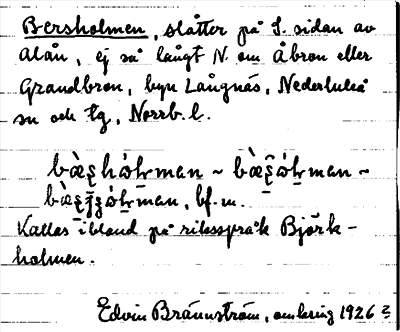 Bersholmen, slåtter på S. sidan av
Alån, ej så långt N. om Åbron eller
Grandbron, byn Långnäs, Nederluleå
sn och tg, Norrb. l.
bæ̀ʂhóɫman ~ bæ̀ʂóɫman ~
bæ̀ʂʂóɫman, bf. m.
Kallas ibland på riksspråk Björk-
holmen.
Edvin Brännström, omkring 1926